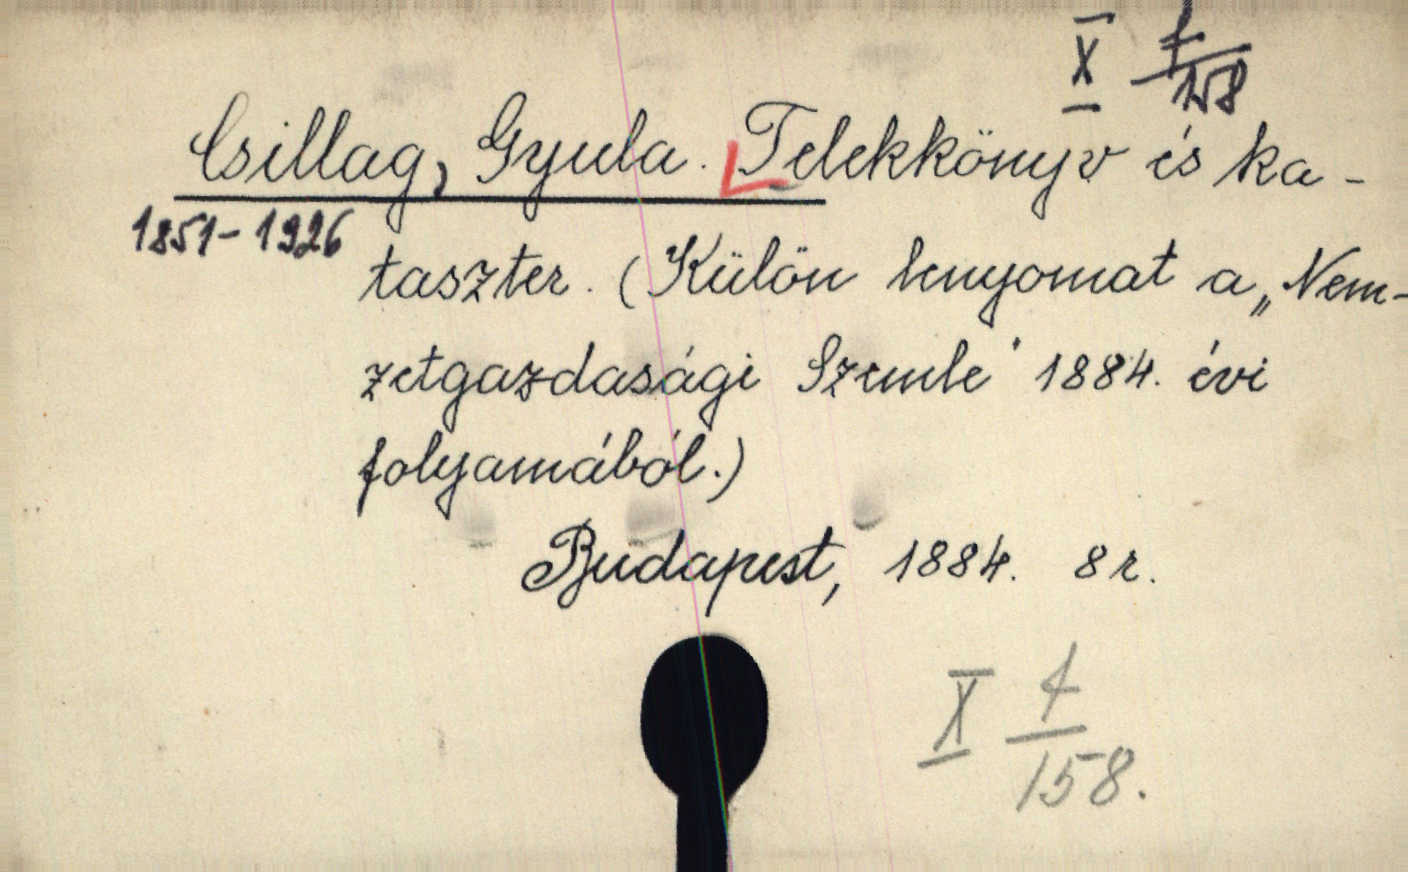 X f/158
Csillag, Gyula. Telekkönyv és ka-
1851-1926
taszter. (Külön lenyomat a „Nem-
zetgazdasági Szemle" 1884. évi
folyamából.)
Budapest, 1884. 8 r.
X f/158.